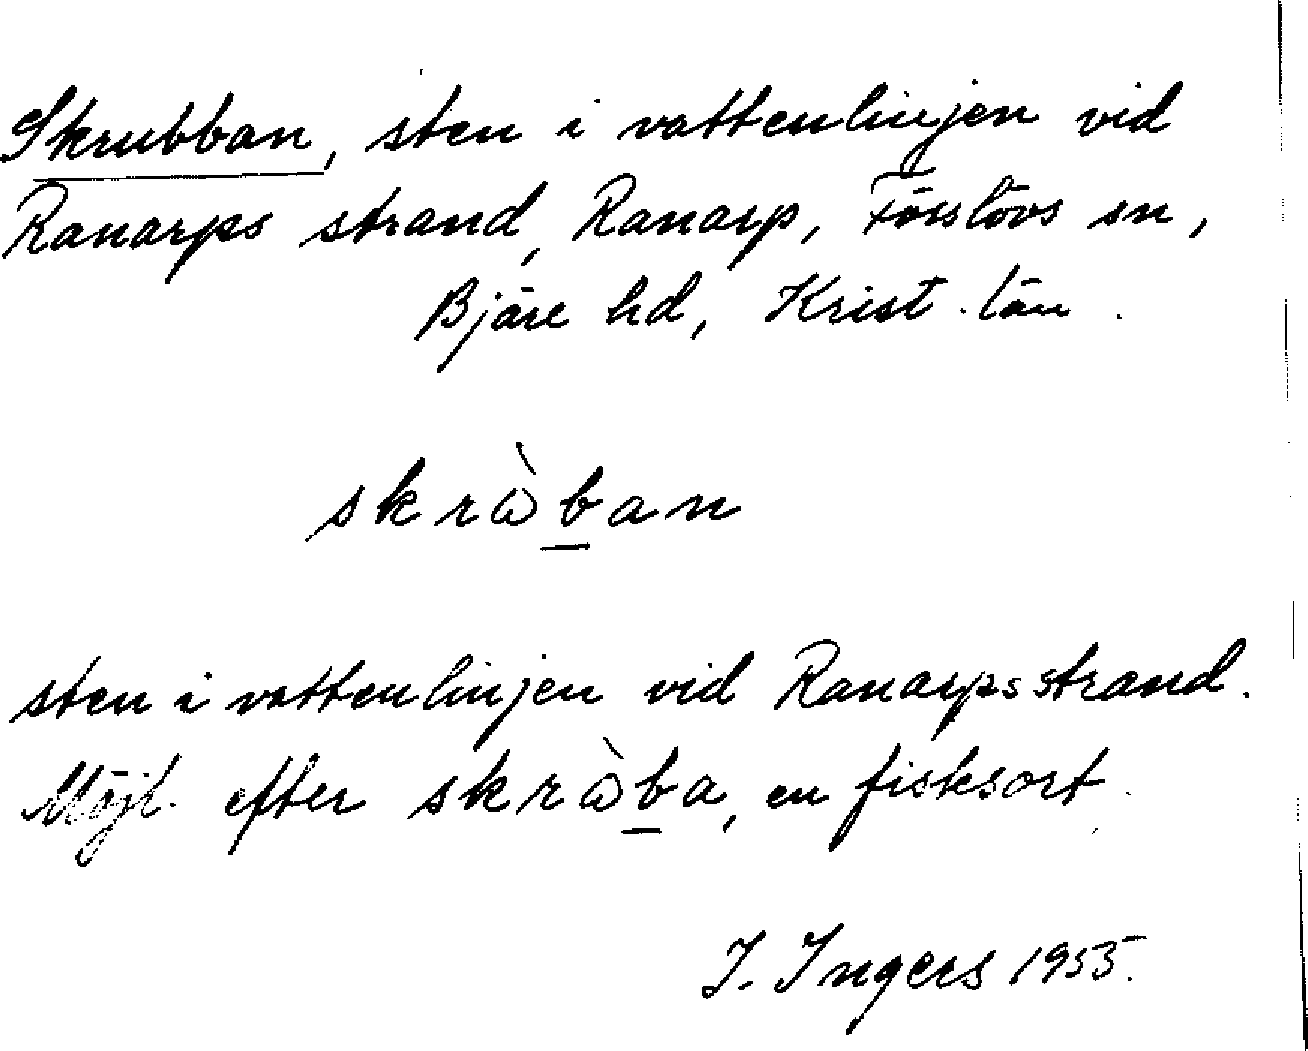 Skrubban, sten i vattenlinjen vid
Ranarps strand, Ranarp, Förslövs sn,
Bjäre hd, Krist. län.
skrὼb̲an
sten i vattenlinjen vid Ranarps strand.
Möjl. efter skrὼb̲a, en fisksort.
I. Ingers 1955.